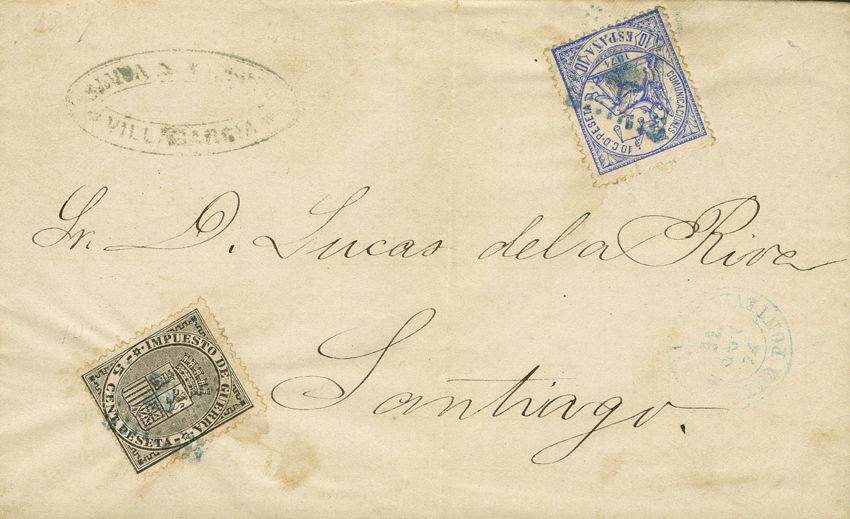 VILLAGARCIA
10 ESPAÑA 10
1874
COMUNICACIONES
10 C. D. PESETA
Sr. D. Lucas de la Riva
Santiago.
IMPUESTO DE GUERRA
5 CENT. PESETA
PONTEV
74